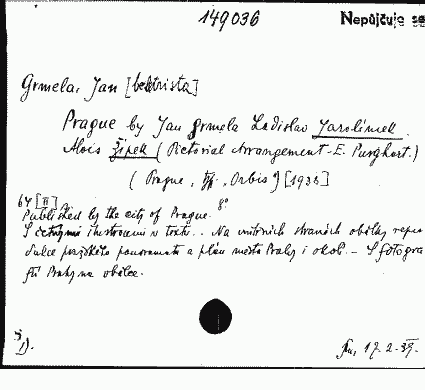 149036 Nepůjčuje se
Grmela, Jan [beletrista]
Prague by Jan Grmela Ladislav Jarolímek.
Alois Žipek (Pictorial Arrangement - E. Purghart.)
(Prague, typ. Orbis) [1938]
64 [II] 8°
Published by the city of Prague.
S četnými ilustracemi v textu. - Na vnitřních stranách obálky repro
dukce pražského panoramata a plán města Prahy i okolí. - S fotogra
fií Prahy na obálce.
17. 2. 39.